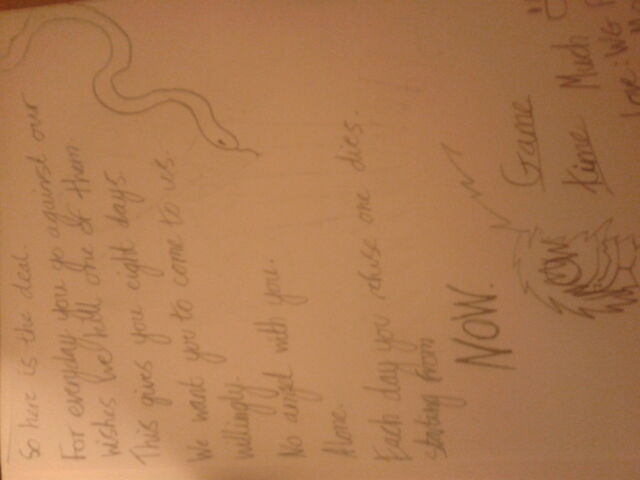 So here is the deal.
For everyday you go against our
wishes we kill one of them
This gives you eight days.
We want you to come to us.
willingly.
No angel with you.
Alone.
Each day you refuse one dies.
starting from
NOW.
Game
time
Much
Love: WG